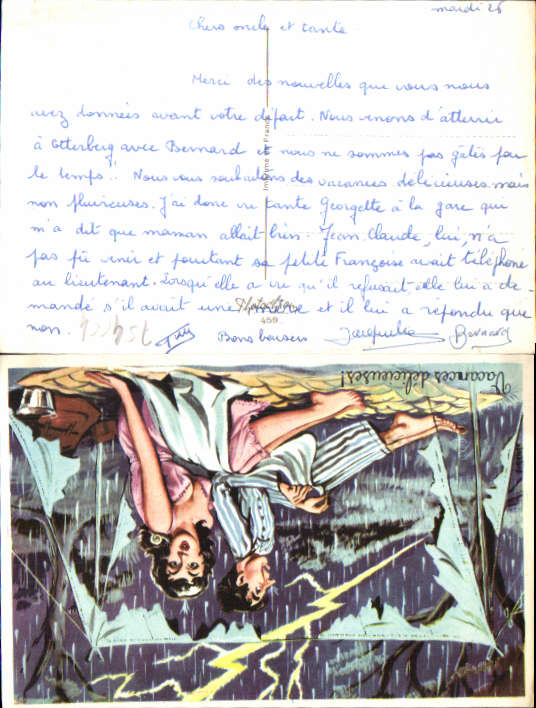 mardi 26
Chers oncle et tante
Merci des nouvelles que vous nous
avez données avant votre départ. Nous venons d'atterrir
à Otterberg avec Bernard et nous ne sommes pas gâtés par
le temps!! Nous vous souhaitons des vacances délicieuses mais
non pluvieuses. J'ai donc vu tante Georgette à la gare qui
m'a dit que maman allait bien. Jean-Claude, lui, n'a
pas pû venir et pourtant sa petite Françoise avait téléphoné
au lieutenant. Lorsqu'elle a vu qu'il refusait elle lui a de-
mandé s'il avait une et il lui a répondu que
non.
Bons baisers Jacqueline Bernard
Imprimé en France
Photochrom
459
Vacances délicieuses!